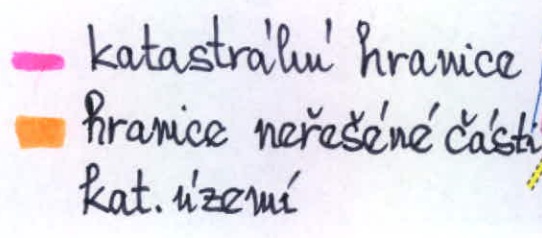 katastrální hranice
hranice neřešéné části
kat. území